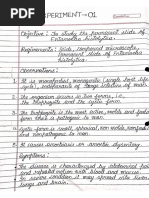 EXPERIMENT → 01
Objective : To study the permanent slide of
Entamoeba histolytica.
Requirements : Slide, compound microscope,
permanent slide of Entamoeba
histolytica.
Observations :
1. It is monophasic, monogenetic (single host life
cycle), endoparasite of large intestine of man.
2. The organism occurs in two forms, i.e.,
the trophozoite and the cystic form.
3. The trophozoite is the most active, motile and feeds
on tissue and is pathogenic to man.
4. Cystic form is small, spherical, non motile, nonfeeding
and infective form.
5. It causes amoebiasis or amoebic dysentery.
Symptoms :
The disease is characterized by abdominal pain
and repeated motion with blood and mucus.
In severe condition, it may spread into liver
lungs and brain.